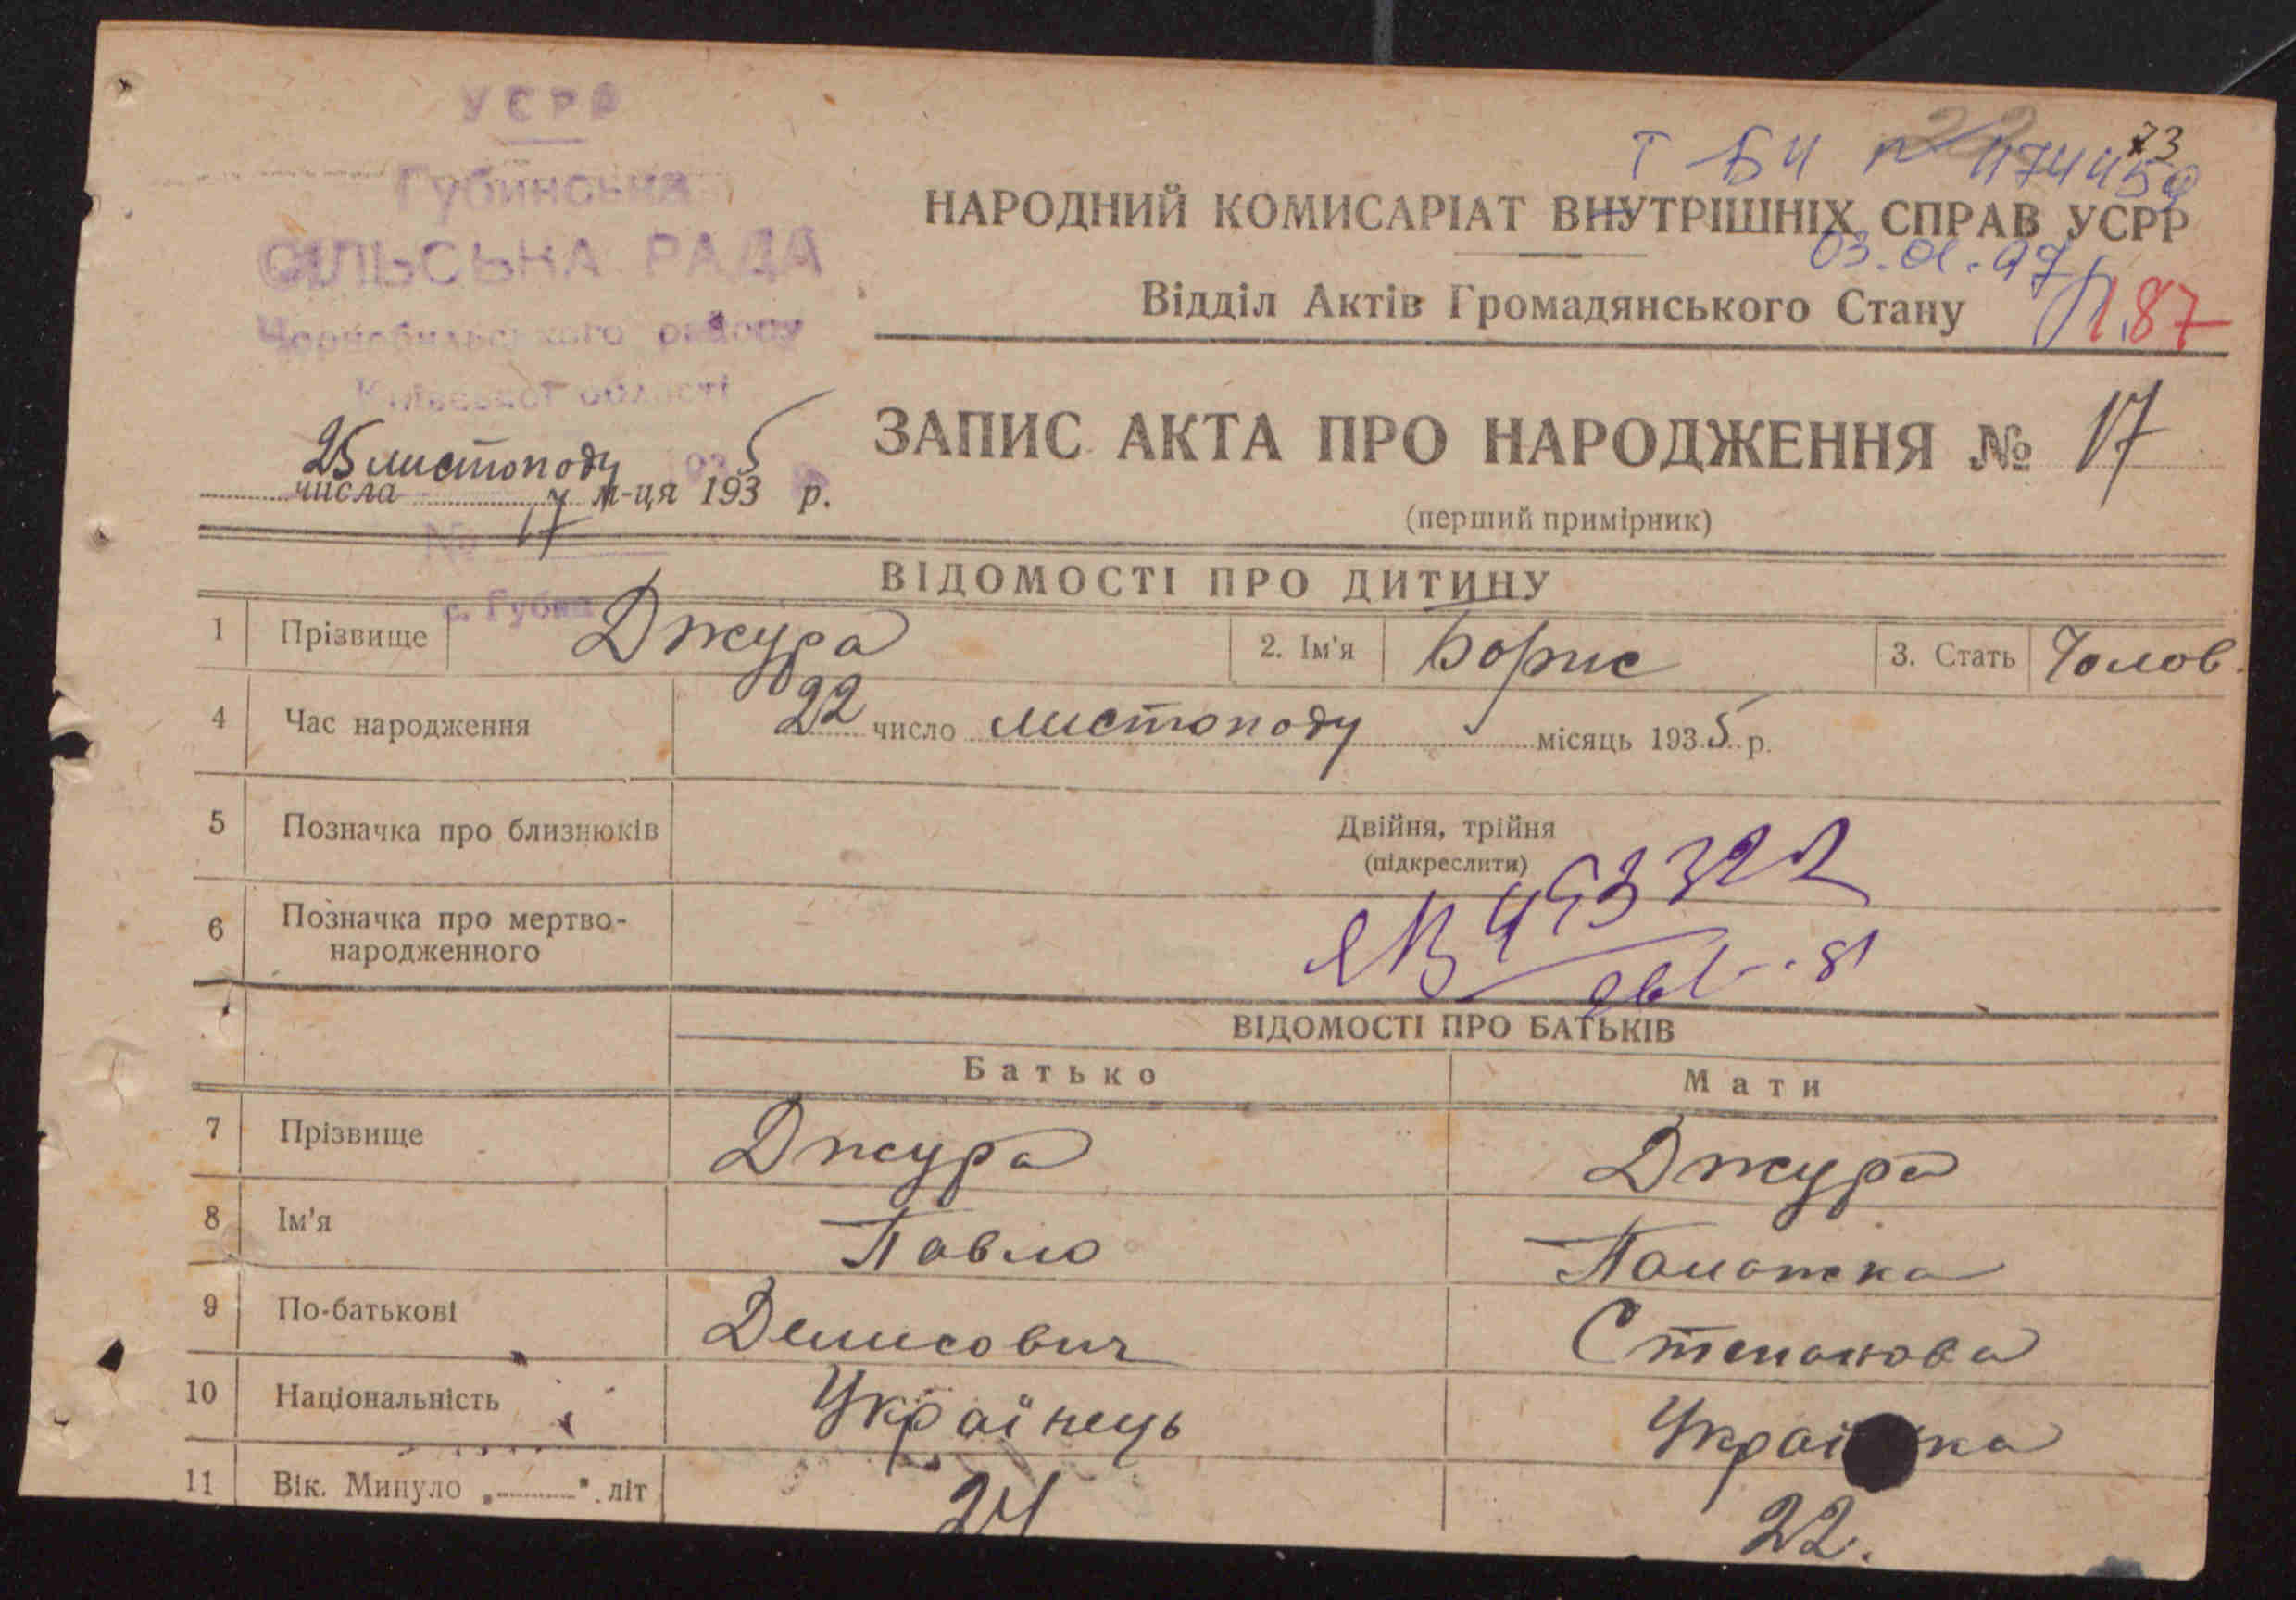 УСРР
Губинська
СІЛЬСЬКА РАДА
Чорнобильського району
Київської області
25 листопаду
числа м-ця 1935 р.
№ 17
с. Губин
73
22
Т БЧ № 474459
НАРОДНИЙ КОМИСАРІАТ ВНУТРІШНІХ СПРАВ УСРР
Відділ Актів Громадянського Стану
87
ЗАПИС АКТА ПРО НАРОДЖЕННЯ № 17
(перший примірник)
ВІДОМОСТІ ПРО ДИТИНУ
1 Прізвище Джура 2. Ім'я Борис 3. Стать Чолов.
4 Час народження 22 число листопаду місяць 1935 р.
5 Позначка про близнюків Двійня, трійня
(підкреслити)
6 Позначка про мертво-
народженного
ВІДОМОСТІ ПРО БАТЬКІВ
Батько Мати
7 Прізвище Джура Джура
8 Ім'я Павло Палажка
9 По-батькові Денисович Степанова
10 Національність Українець Украї ка
11 Вік. Минуло „ “ літ 24 22.